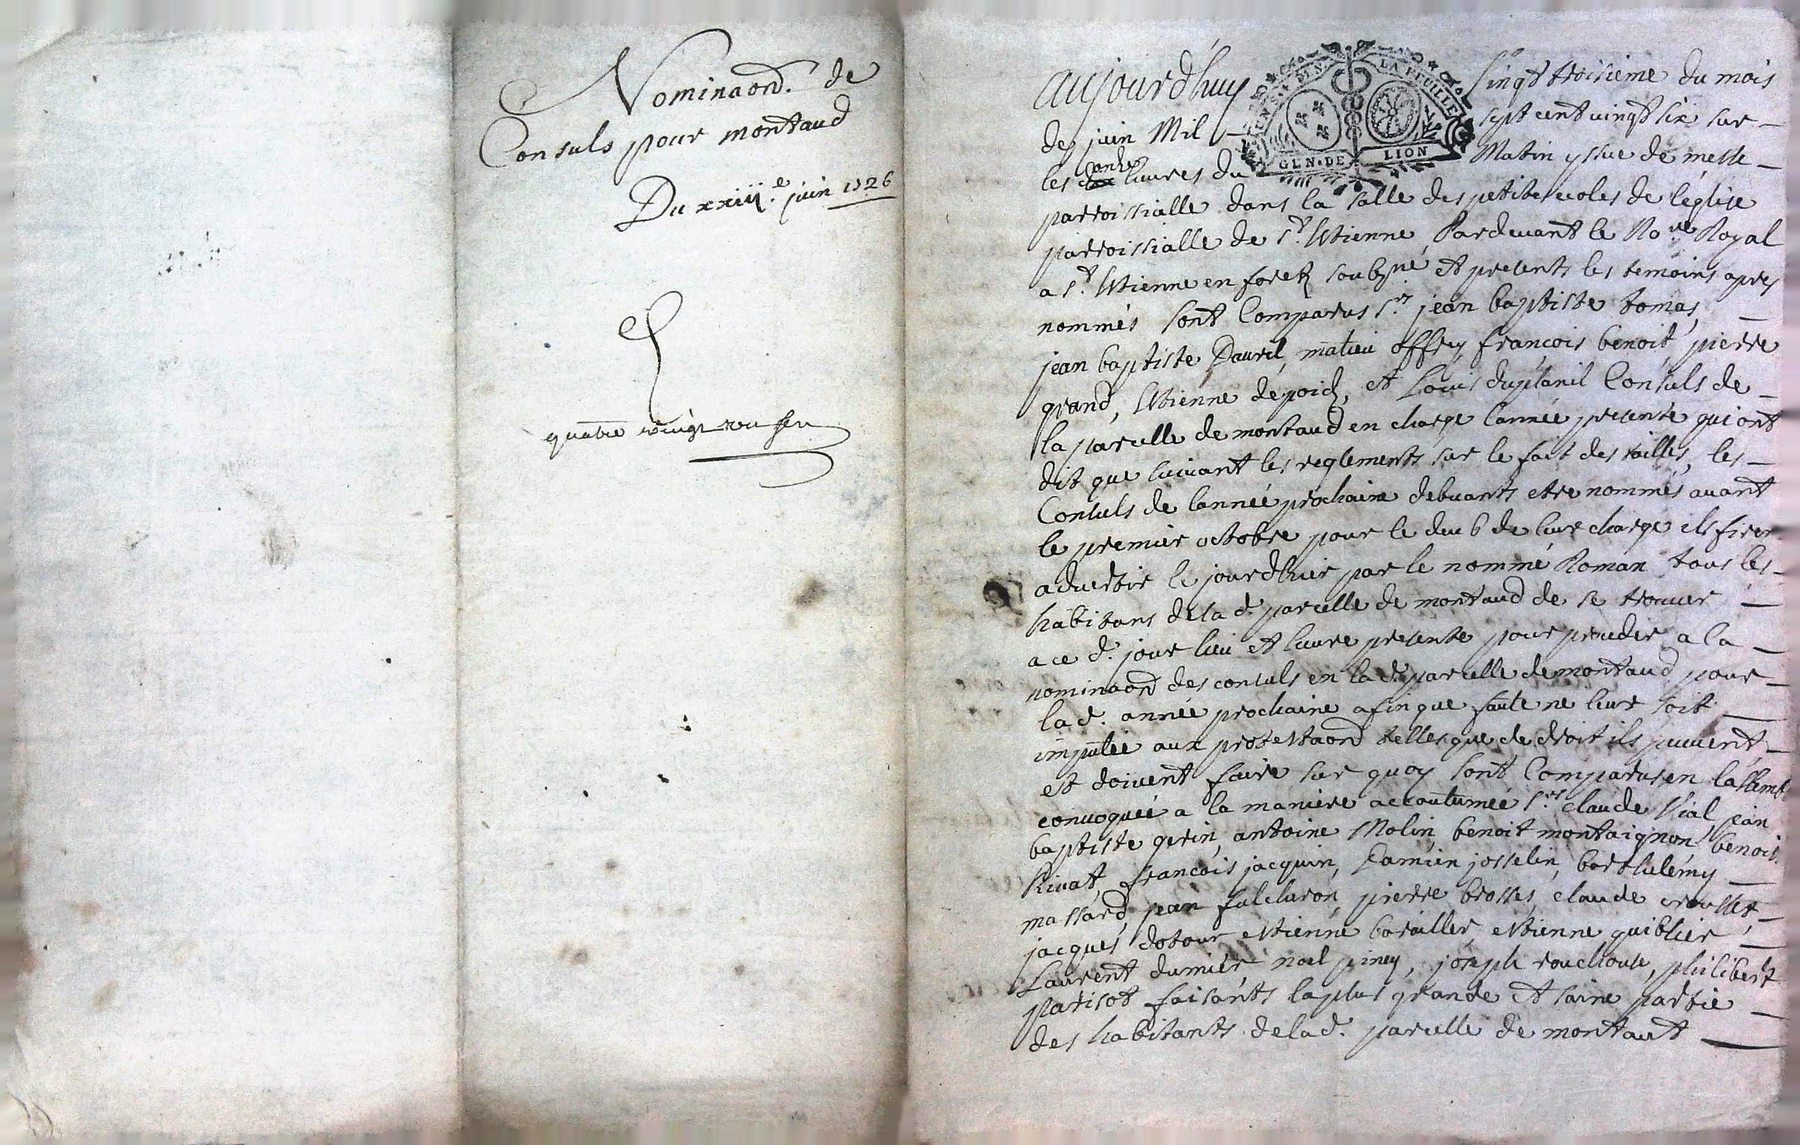 Nominaon. de
Consuls pour montaud
Du xxiii.e juin 1726
quatre vingt
aujourd'huy vingt troisieme du mois
UN S. 4 DEN. LA FEUILLE
GEN. DE LION
de juin Mil sept cent vingt six sur
les onze heures du Matin yssue de messe
parroissialle dans la salle des petites ecoles de l'eglise
parroissialle de st. Etienne Pardevant le No.re Royal
a st. Etienne en forez soubz.né et presents les temoins apres
nommés sont Comparus sr. jean baptiste tomas,
jean baptiste Dauvel, matieu offrey francois benoit, pierre
grand, Etienne depoid, et Louis duplanil Consuls de
la parcelle de montaud en charge l'année presente qui ont
dit que suivant les reglements sur le fait des tailles, les
Consuls de l'année prochaine debvants etre nommés avant
le premier octobre pour le deub de leur charge ils firen
advertir le jourdhier par le nommé Roman tous les
habitans de la d. parcelle de montaud de se trouver
a ce d. jour lieu et heure presente pour proceder a la
nominaon des consuls en la d. parcelle de montaud pour
la d. année prochaine afin que faute ne leur soit
imputée aux protestaon telles que de droit ils peuvent
et doivent faire sur quoy sont Comparus en l'assemb
convoquée a la maniere accoutumée srs. claude Vial jean
baptiste gerin, antoine Molin benoit montaignon, benoit
Rivat, francois jacquin, Damien josselin, barthelemy
massard, jean fulcheron pierre brosses, claude crouzet,
jacques dotour etienne barailler etienne quiblier
Laurent dumier noel piney, joseph rouchouse, philibert
parisot faisants la plus grande et saine partie
des habitants de la d. parcelle de montaut